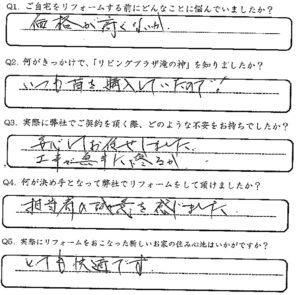 Q1. ご自宅をリフォームする前にどんなことに悩んでいましたか?
価格が高くないか
Q2. 何がきっかけで、「リビングプラザ滝の神」を知りましたか?
いつも苗を購入していたので!
Q3. 実際に弊社でご契約を頂く際、どのような不安をお持ちでしたか?
安心してお任せしました
工事が無事に終るか
Q4. 何が決め手となって弊社でリフォームをして頂けましたか?
担当者の誠意を感じました
Q5. 実際にリフォームをおこなった新しいお家の住み心地はいかがですか?
とても快適です